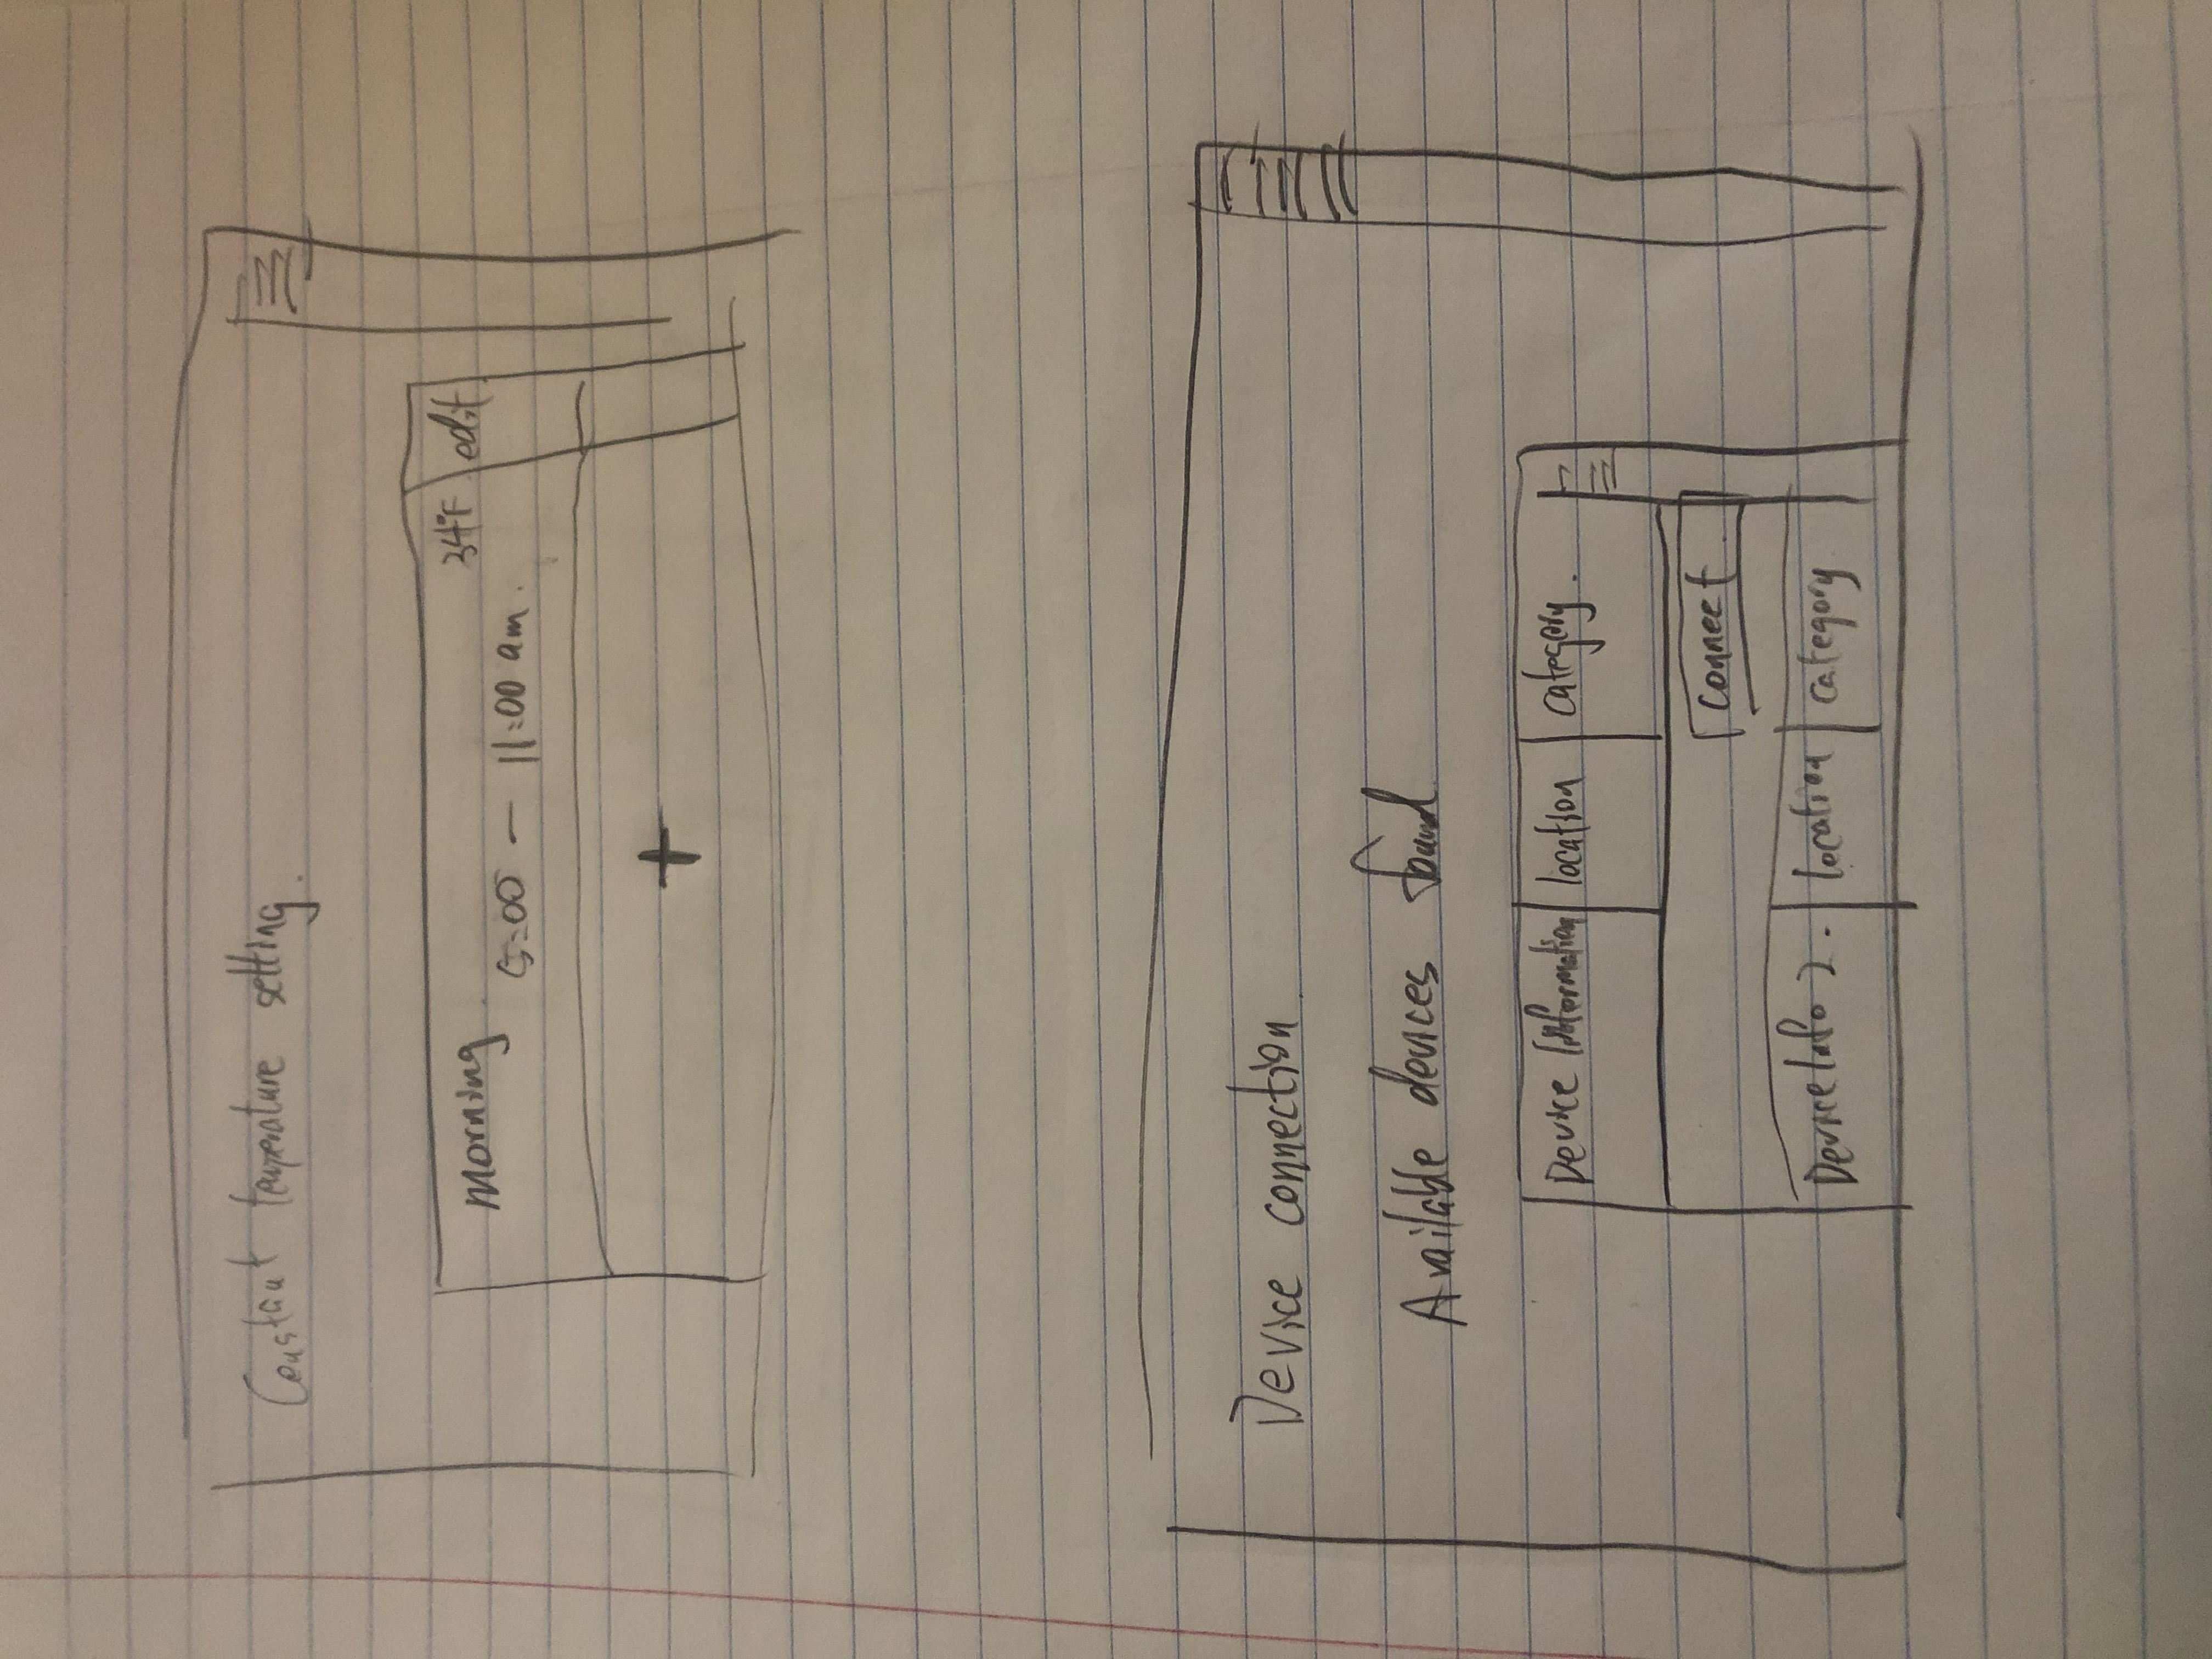 Constant temperature setting.
morning 34°F edit
5:00 — 11:00 am.
+
Device connection
Available devices found
Device Information location category.
connect
Device Info 2. location category